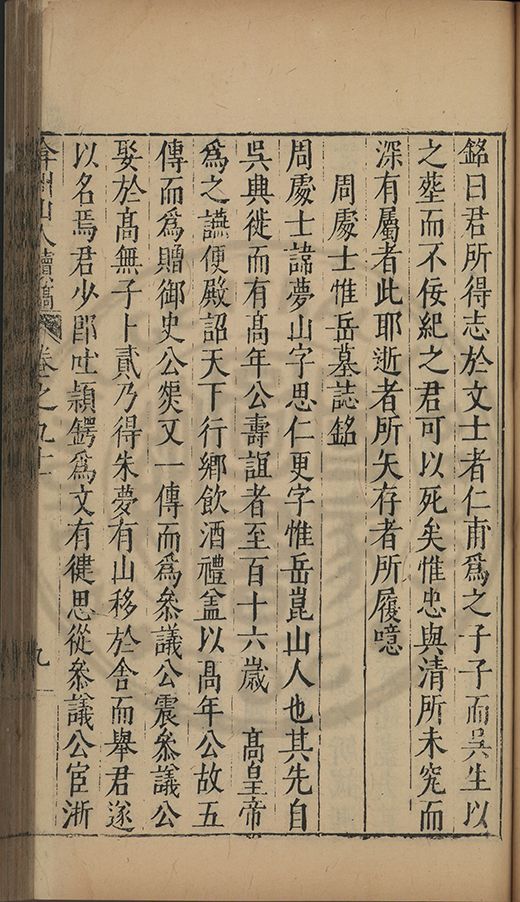 銘曰君所得志於文士者仁甫爲之子子而吳生以
之塟而不佞紀之君可以死矣惟忠與清所未究而
深有屬者此耶逝者所矢存者所履噫
周處士惟岳墓誌銘
周處士諱夢山字思仁更字惟岳崑山人也其先自
吳興徙而有髙年公壽誼者至百十六歲 髙皇帝
爲之讌便殿詔天下行鄉飲酒禮盖以髙年公故五
傳而爲贈御史公㷼又一傳而爲叅議公震叅議公
娶於髙無子卜貳乃得朱夢有山移於舍而舉君遂
以名焉君少卽吐穎鍔爲文有徤思從叅議公宦浙
弇州山人續稿 卷之九十 九